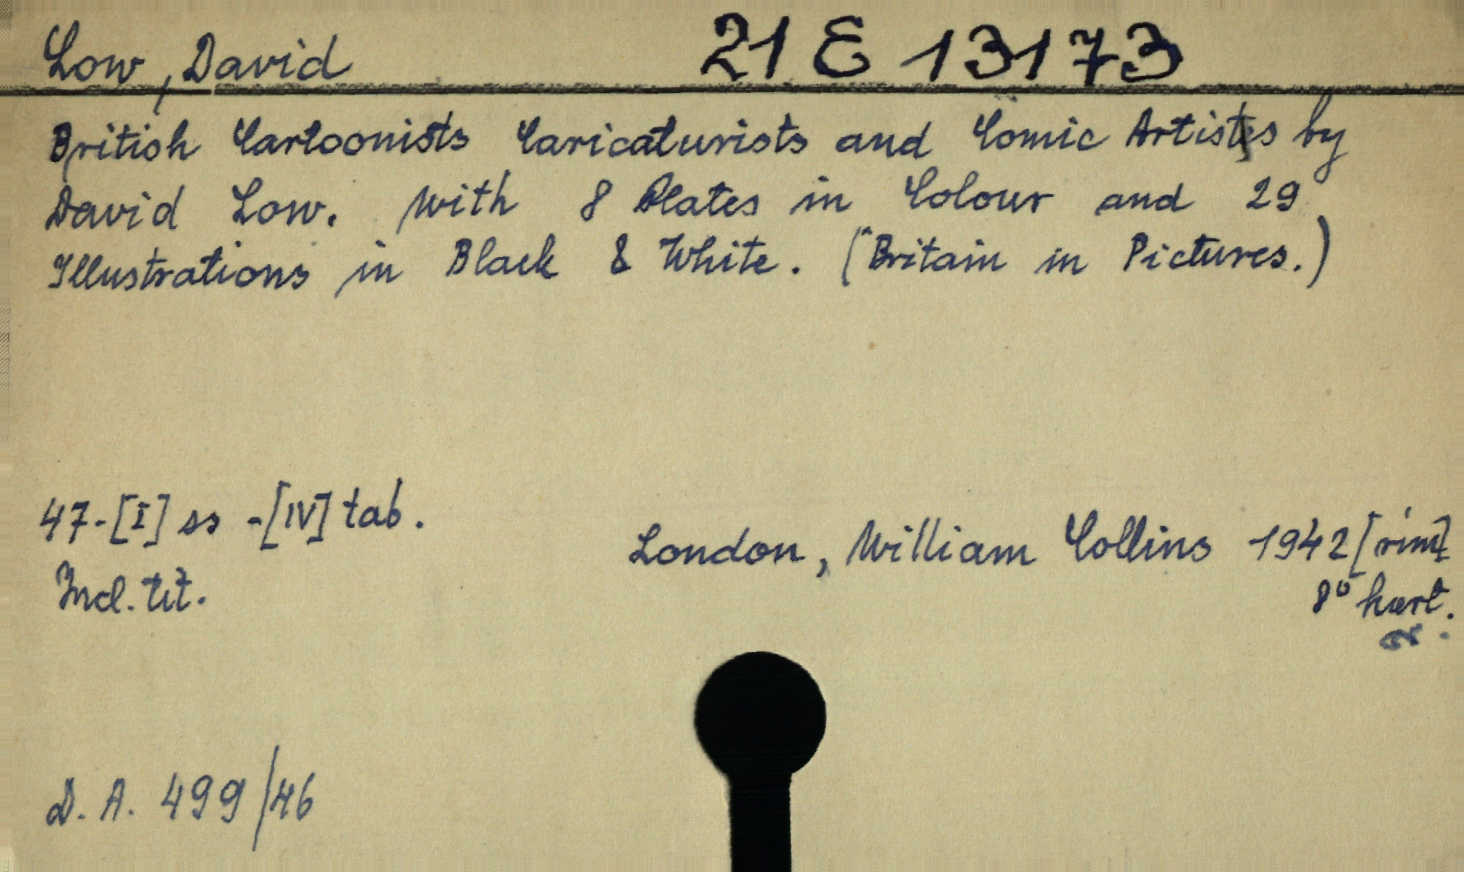 Low, David 21 E 13173
British Cartoonists Caricaturists and Comic Artists by
David Low. With 8 Plates in Colour and 29
Illustrations in Black & White. (Britain in Pictures.)
47-[I] ss -[IV] tab.
London, William Collins 1942 [rím]
Incl. tit.
8° kart.
D. A. 499/46